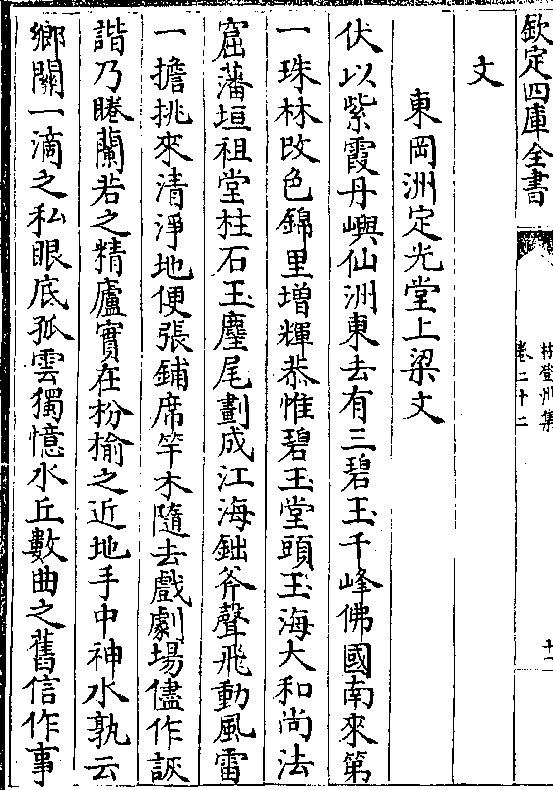 欽定四庫全書
林登州集
卷二十二
十二
文
東岡洲定光堂上梁文
伏以紫霞丹嶼仙洲東去有三碧玉千峰佛國南來第
一珠林改色錦里增輝恭惟碧玉堂頭玉海大和尚法
窟藩垣祖堂柱石玉麈尾劃成江海鈯斧聲飛動風雷
一擔挑來清淨地便張鋪席竿木隨去戲劇場儘作詼
諧乃睠蘭若之精廬實在枌榆之近地手中神水孰云
鄉關一滴之私眼底孤雲獨憶水丘數曲之舊信作事